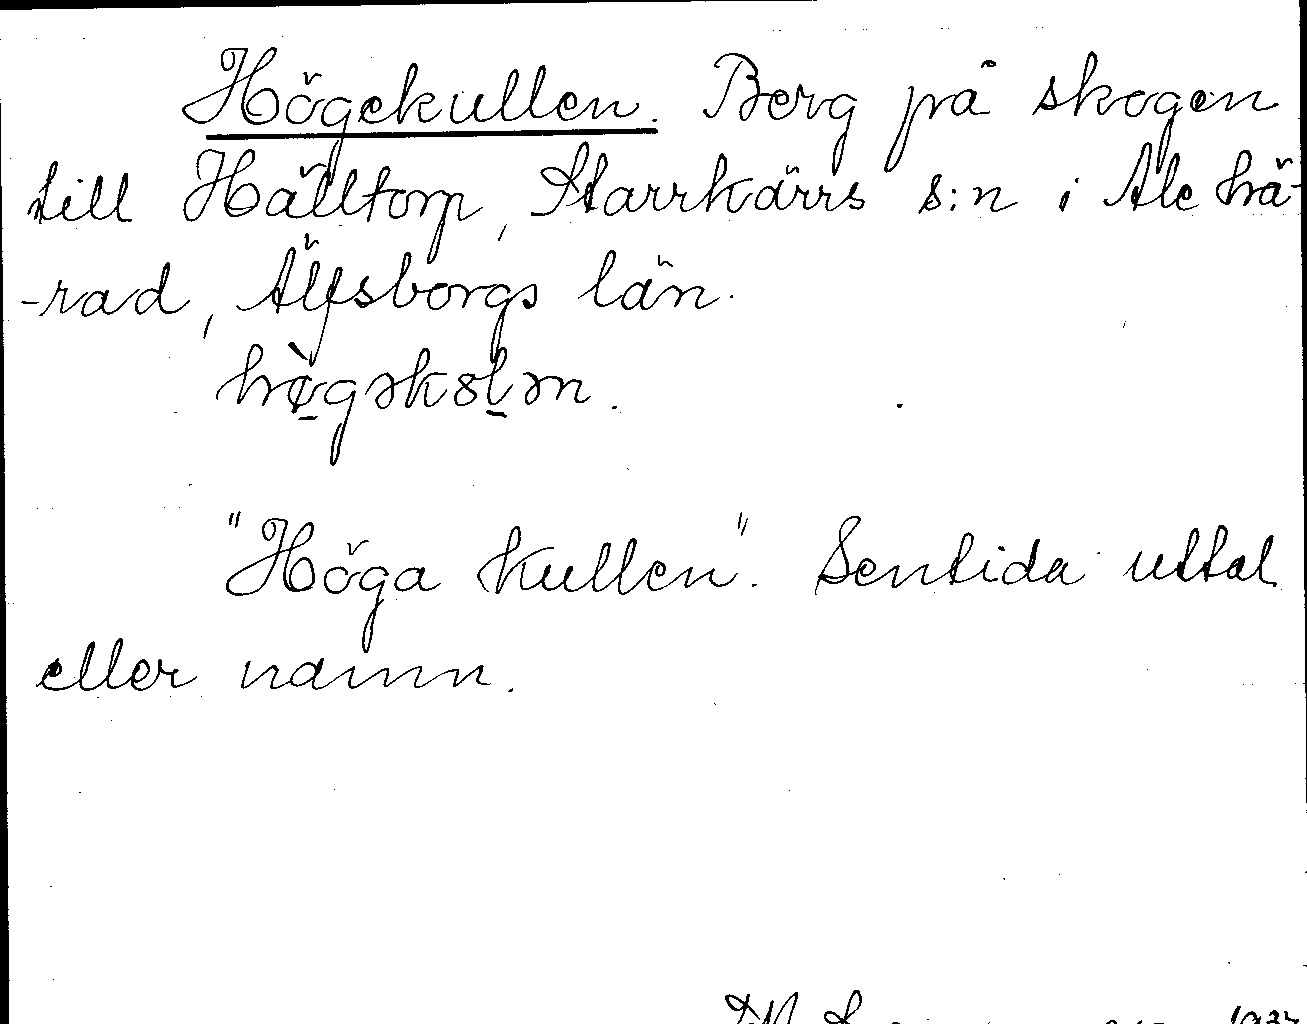 Högekullen. Berg på skogen
till Hälltorp, Starrkärrs s:n i Ale hä-
-rad, Älfsborgs län.
hø̀gəkȣl̠ən.
"Höga kullen". Sentida uttal
eller namn.